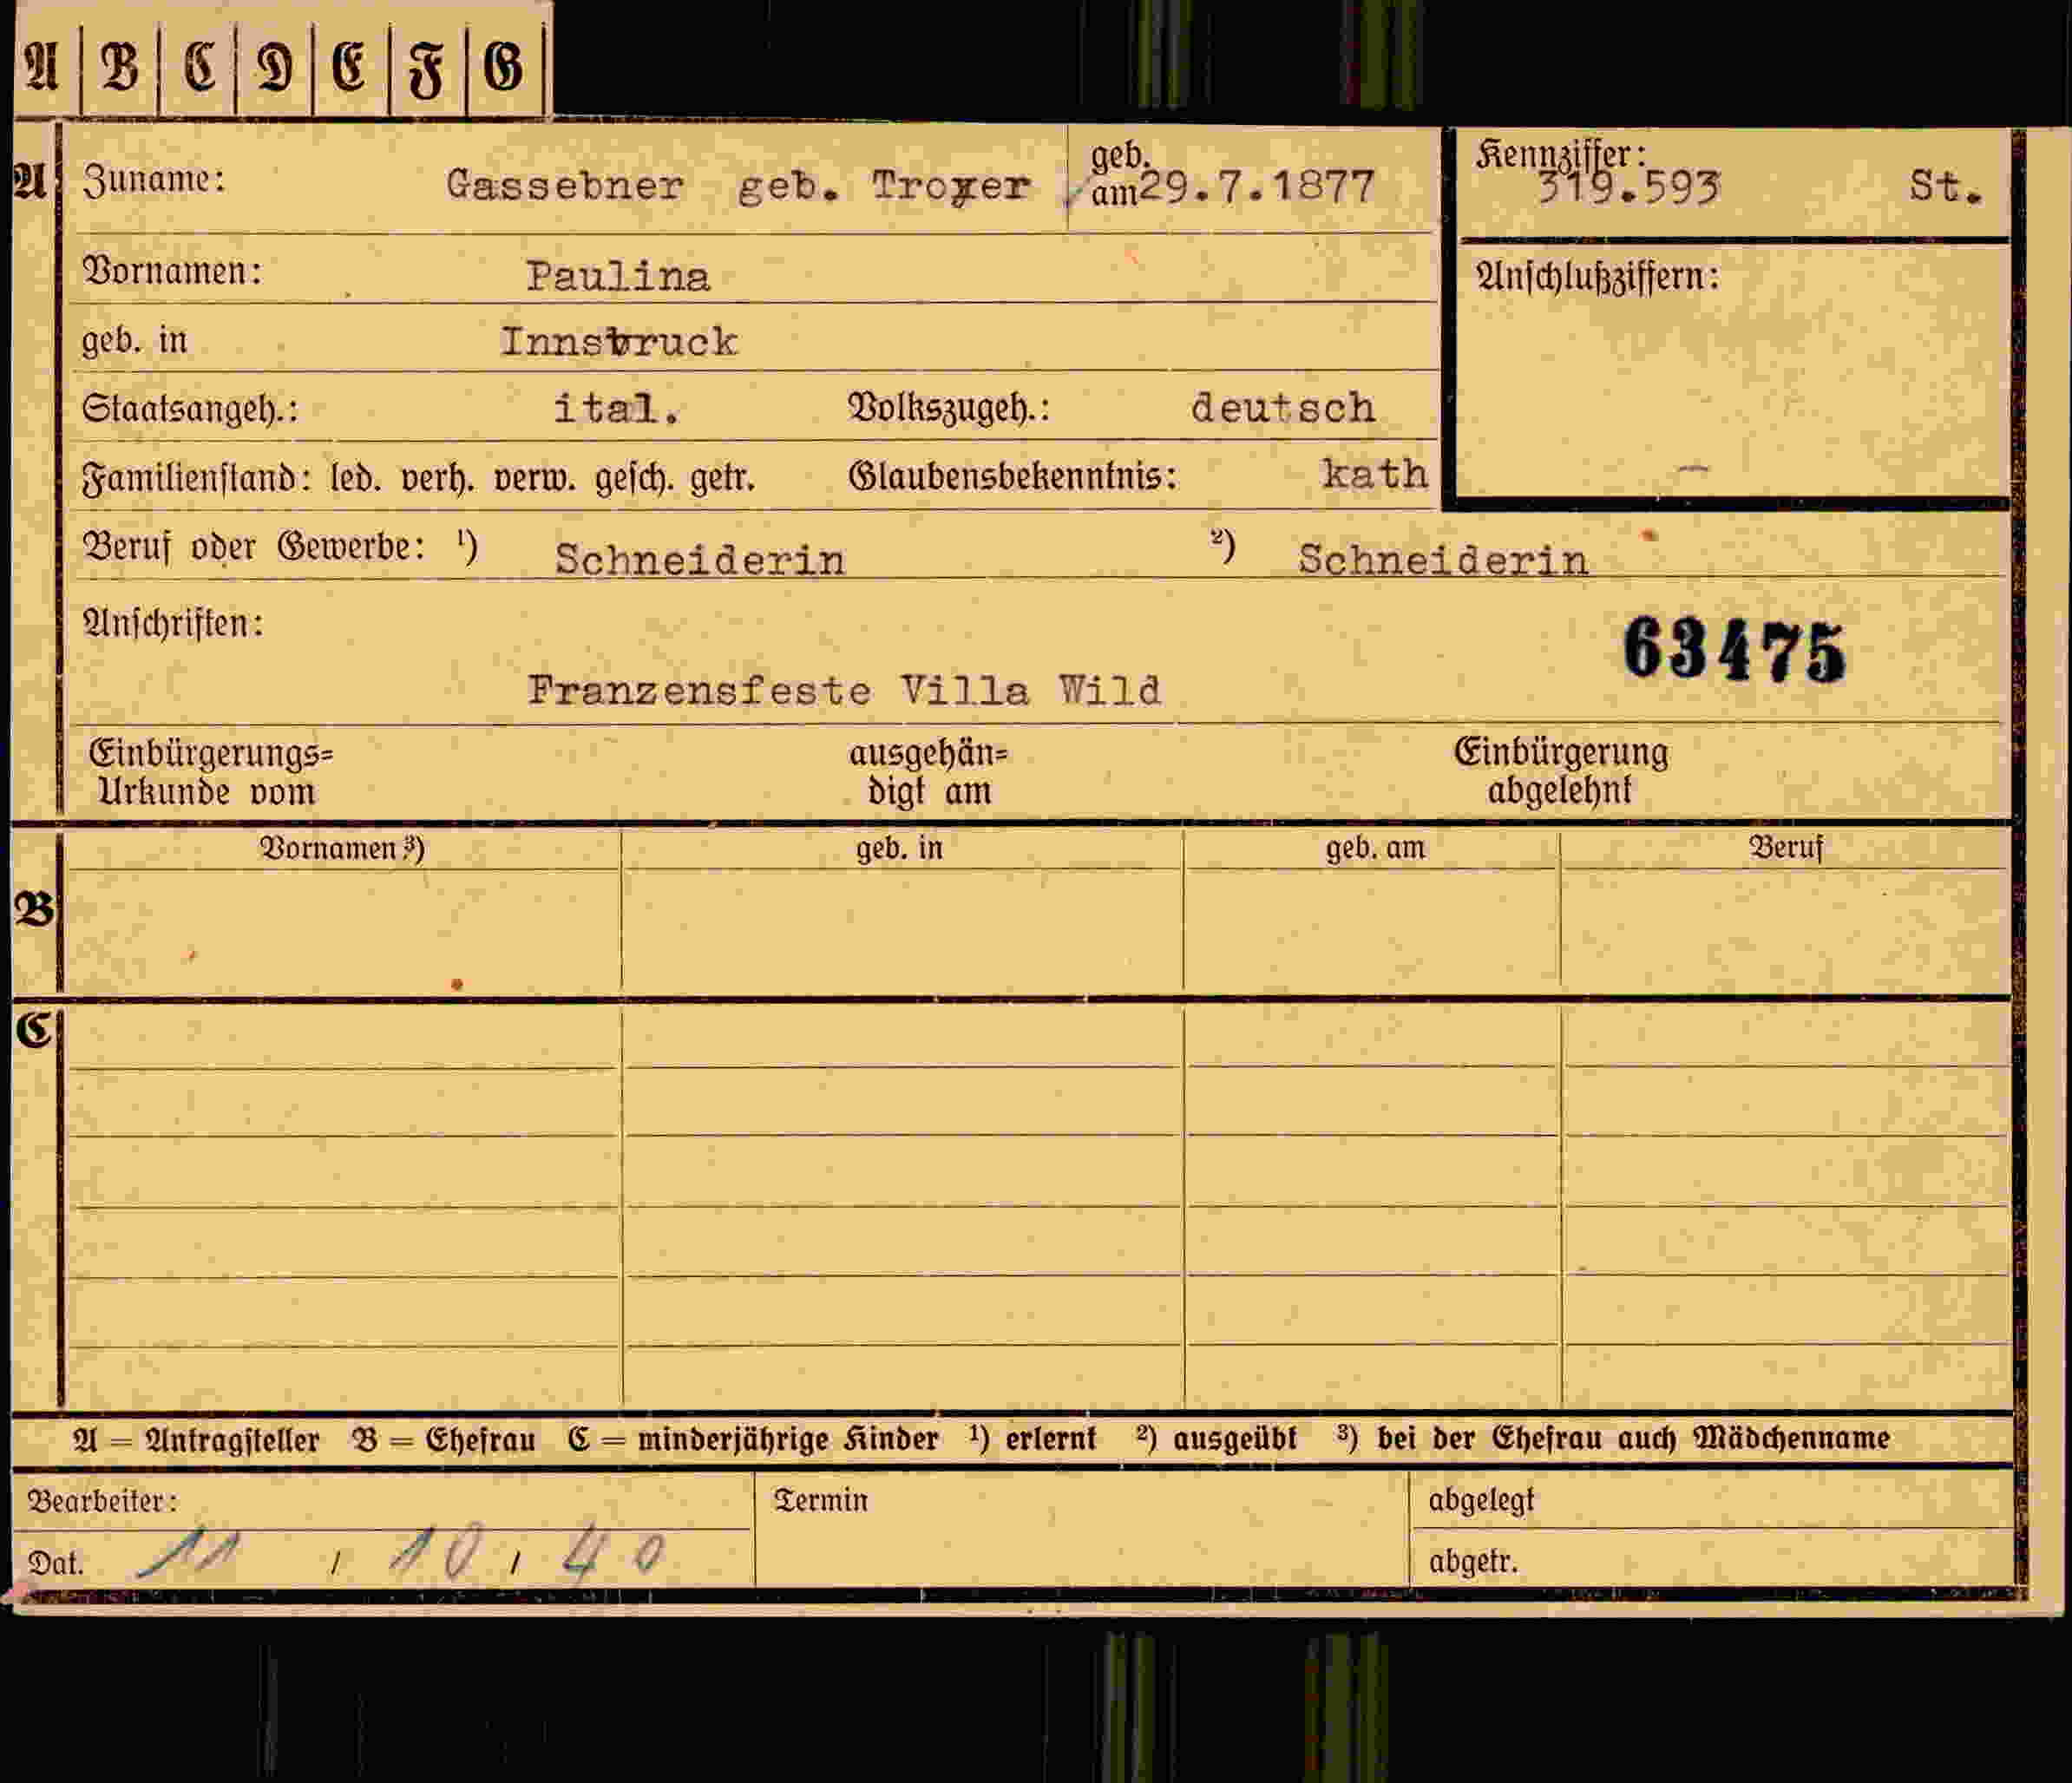 A B C D E F G
A Zuname: Gassebner geb. Troyer geb. am 29.7.1877 Kennziffer: 319.593 St.
Vornamen: Paulina Anschlußziffern:
geb. in Innsbruck
Staatsangeh.: ital. Volkszugeh.: deutsch
Familienstand: led. verh. verw. gesch. getr. Glaubensbekenntnis: kath —
Beruf oder Gewerbe: ¹) Schneiderin ²) Schneiderin
Anschriften: 63475
Franzensfeste Villa Wild
Einbürgerungs= ausgehän= Einbürgerung
Urkunde vom digt am abgelehnt
Vornamen ³) geb. in geb. am Beruf
B
C
A = Antragsteller B = Ehefrau C = minderjährige Kinder ¹) erlernt ²) ausgeübt ³) bei der Ehefrau auch Mädchenname
Bearbeiter: Termin abgelegt
Dat. 11 / 10 / 40 abgetr.